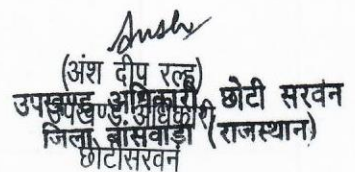 (अंश दीप रल्ह)
उपखण्ड अधिकारी छोटी सरवन
उपखण्ड अधिकारी
जिला बांसवाड़ा (राजस्थान)
छोटीसरवन